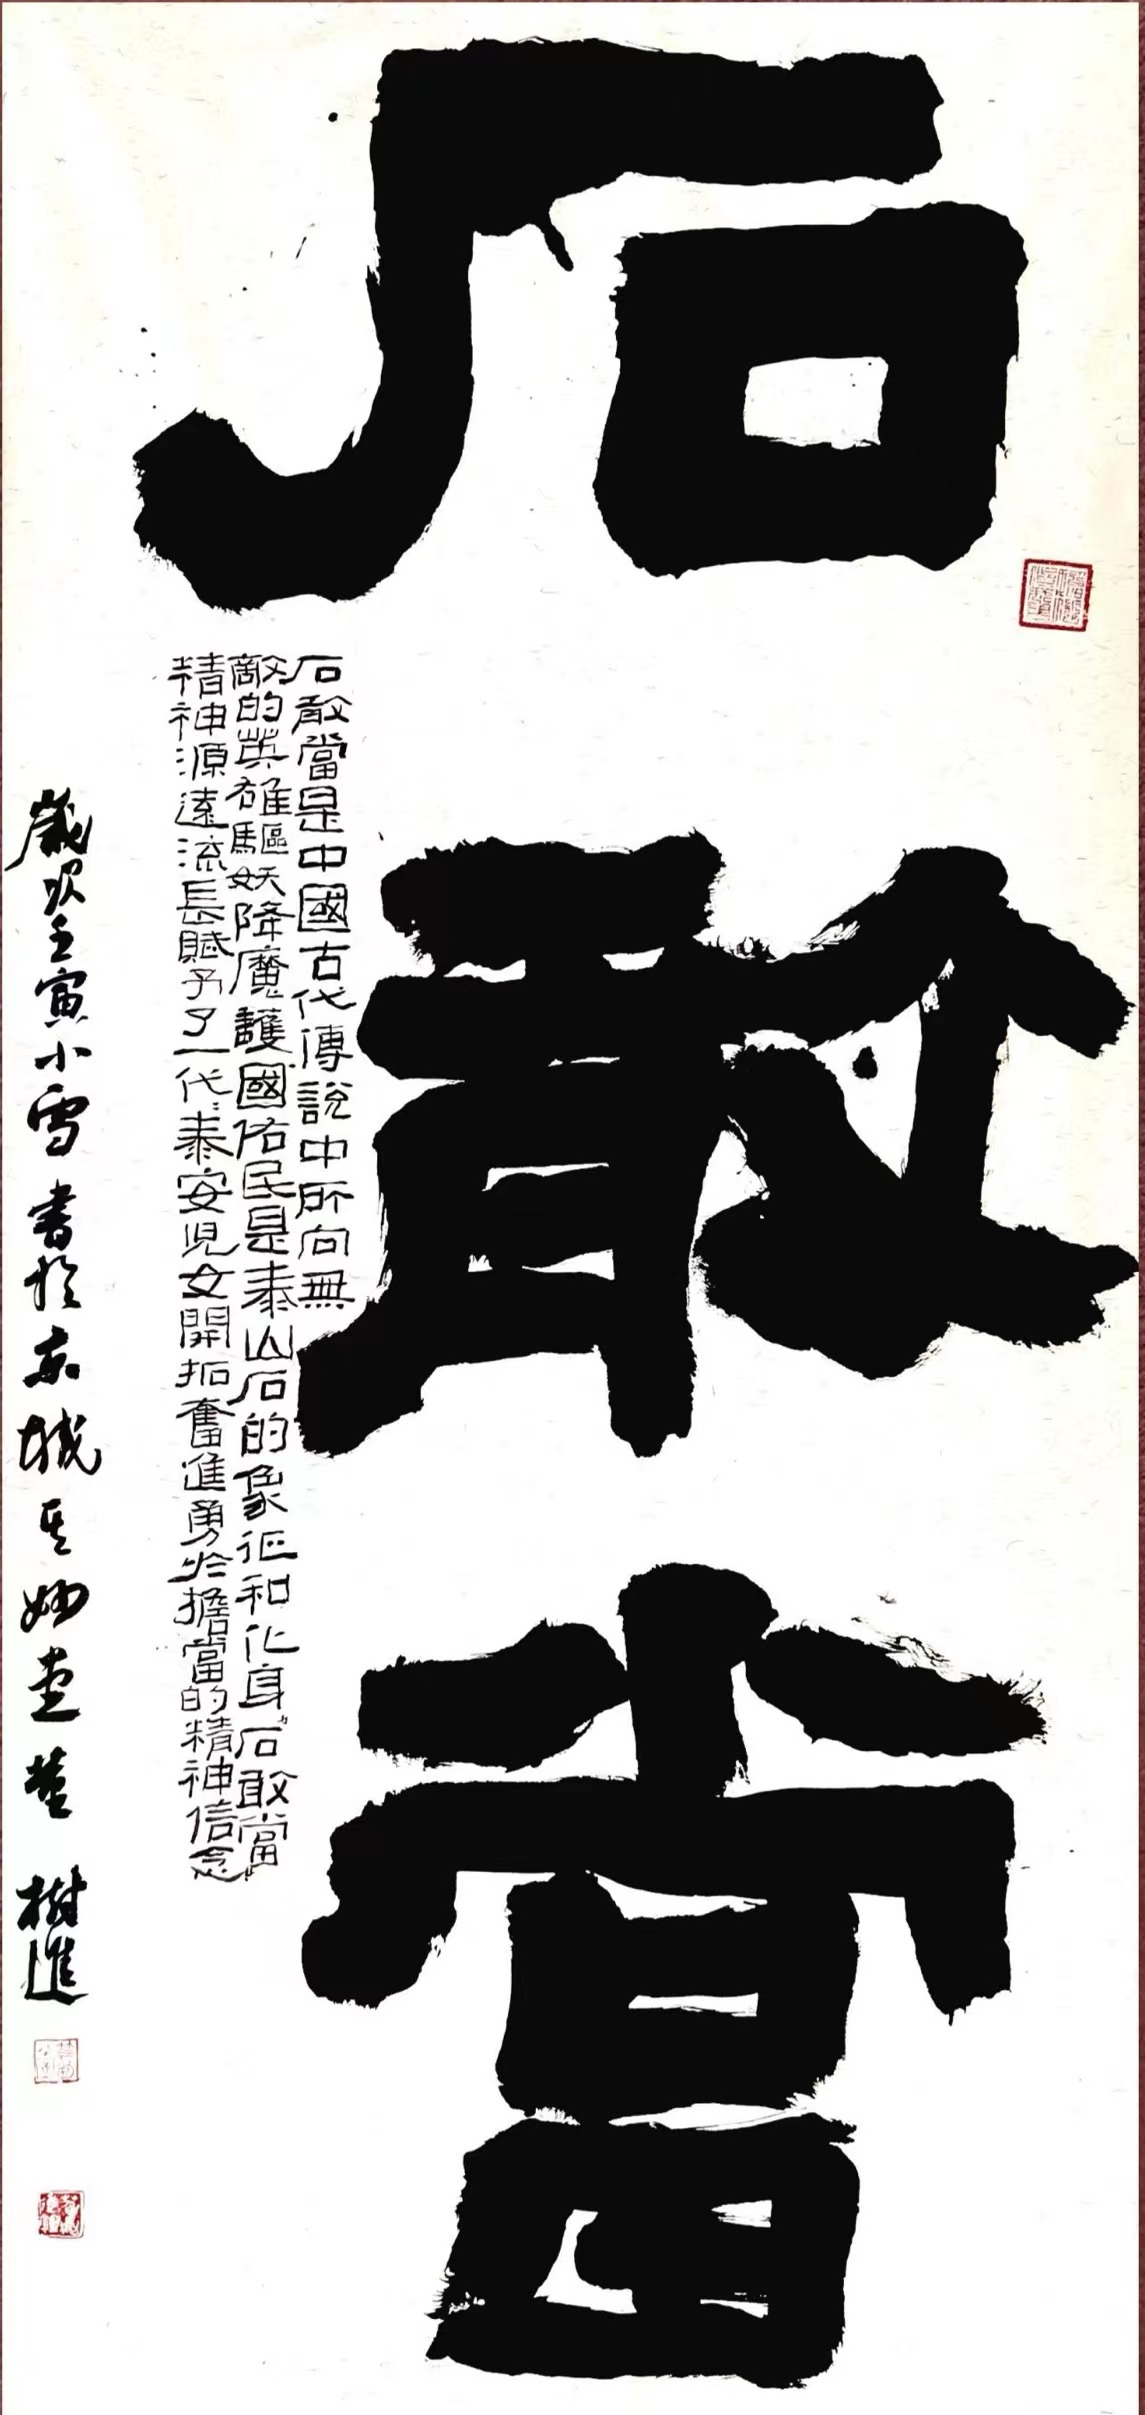 石敢當
石敢當是中國古代傳說中所向無
敵的英雄驅妖降魔護國佑民是泰山石的象征和化身"石敢當"
精神源遠流長賦予了一代代泰安兒女開拓奮進勇於擔當的精神信念
歲次壬寅小雪書於京城天妙堂董樹進